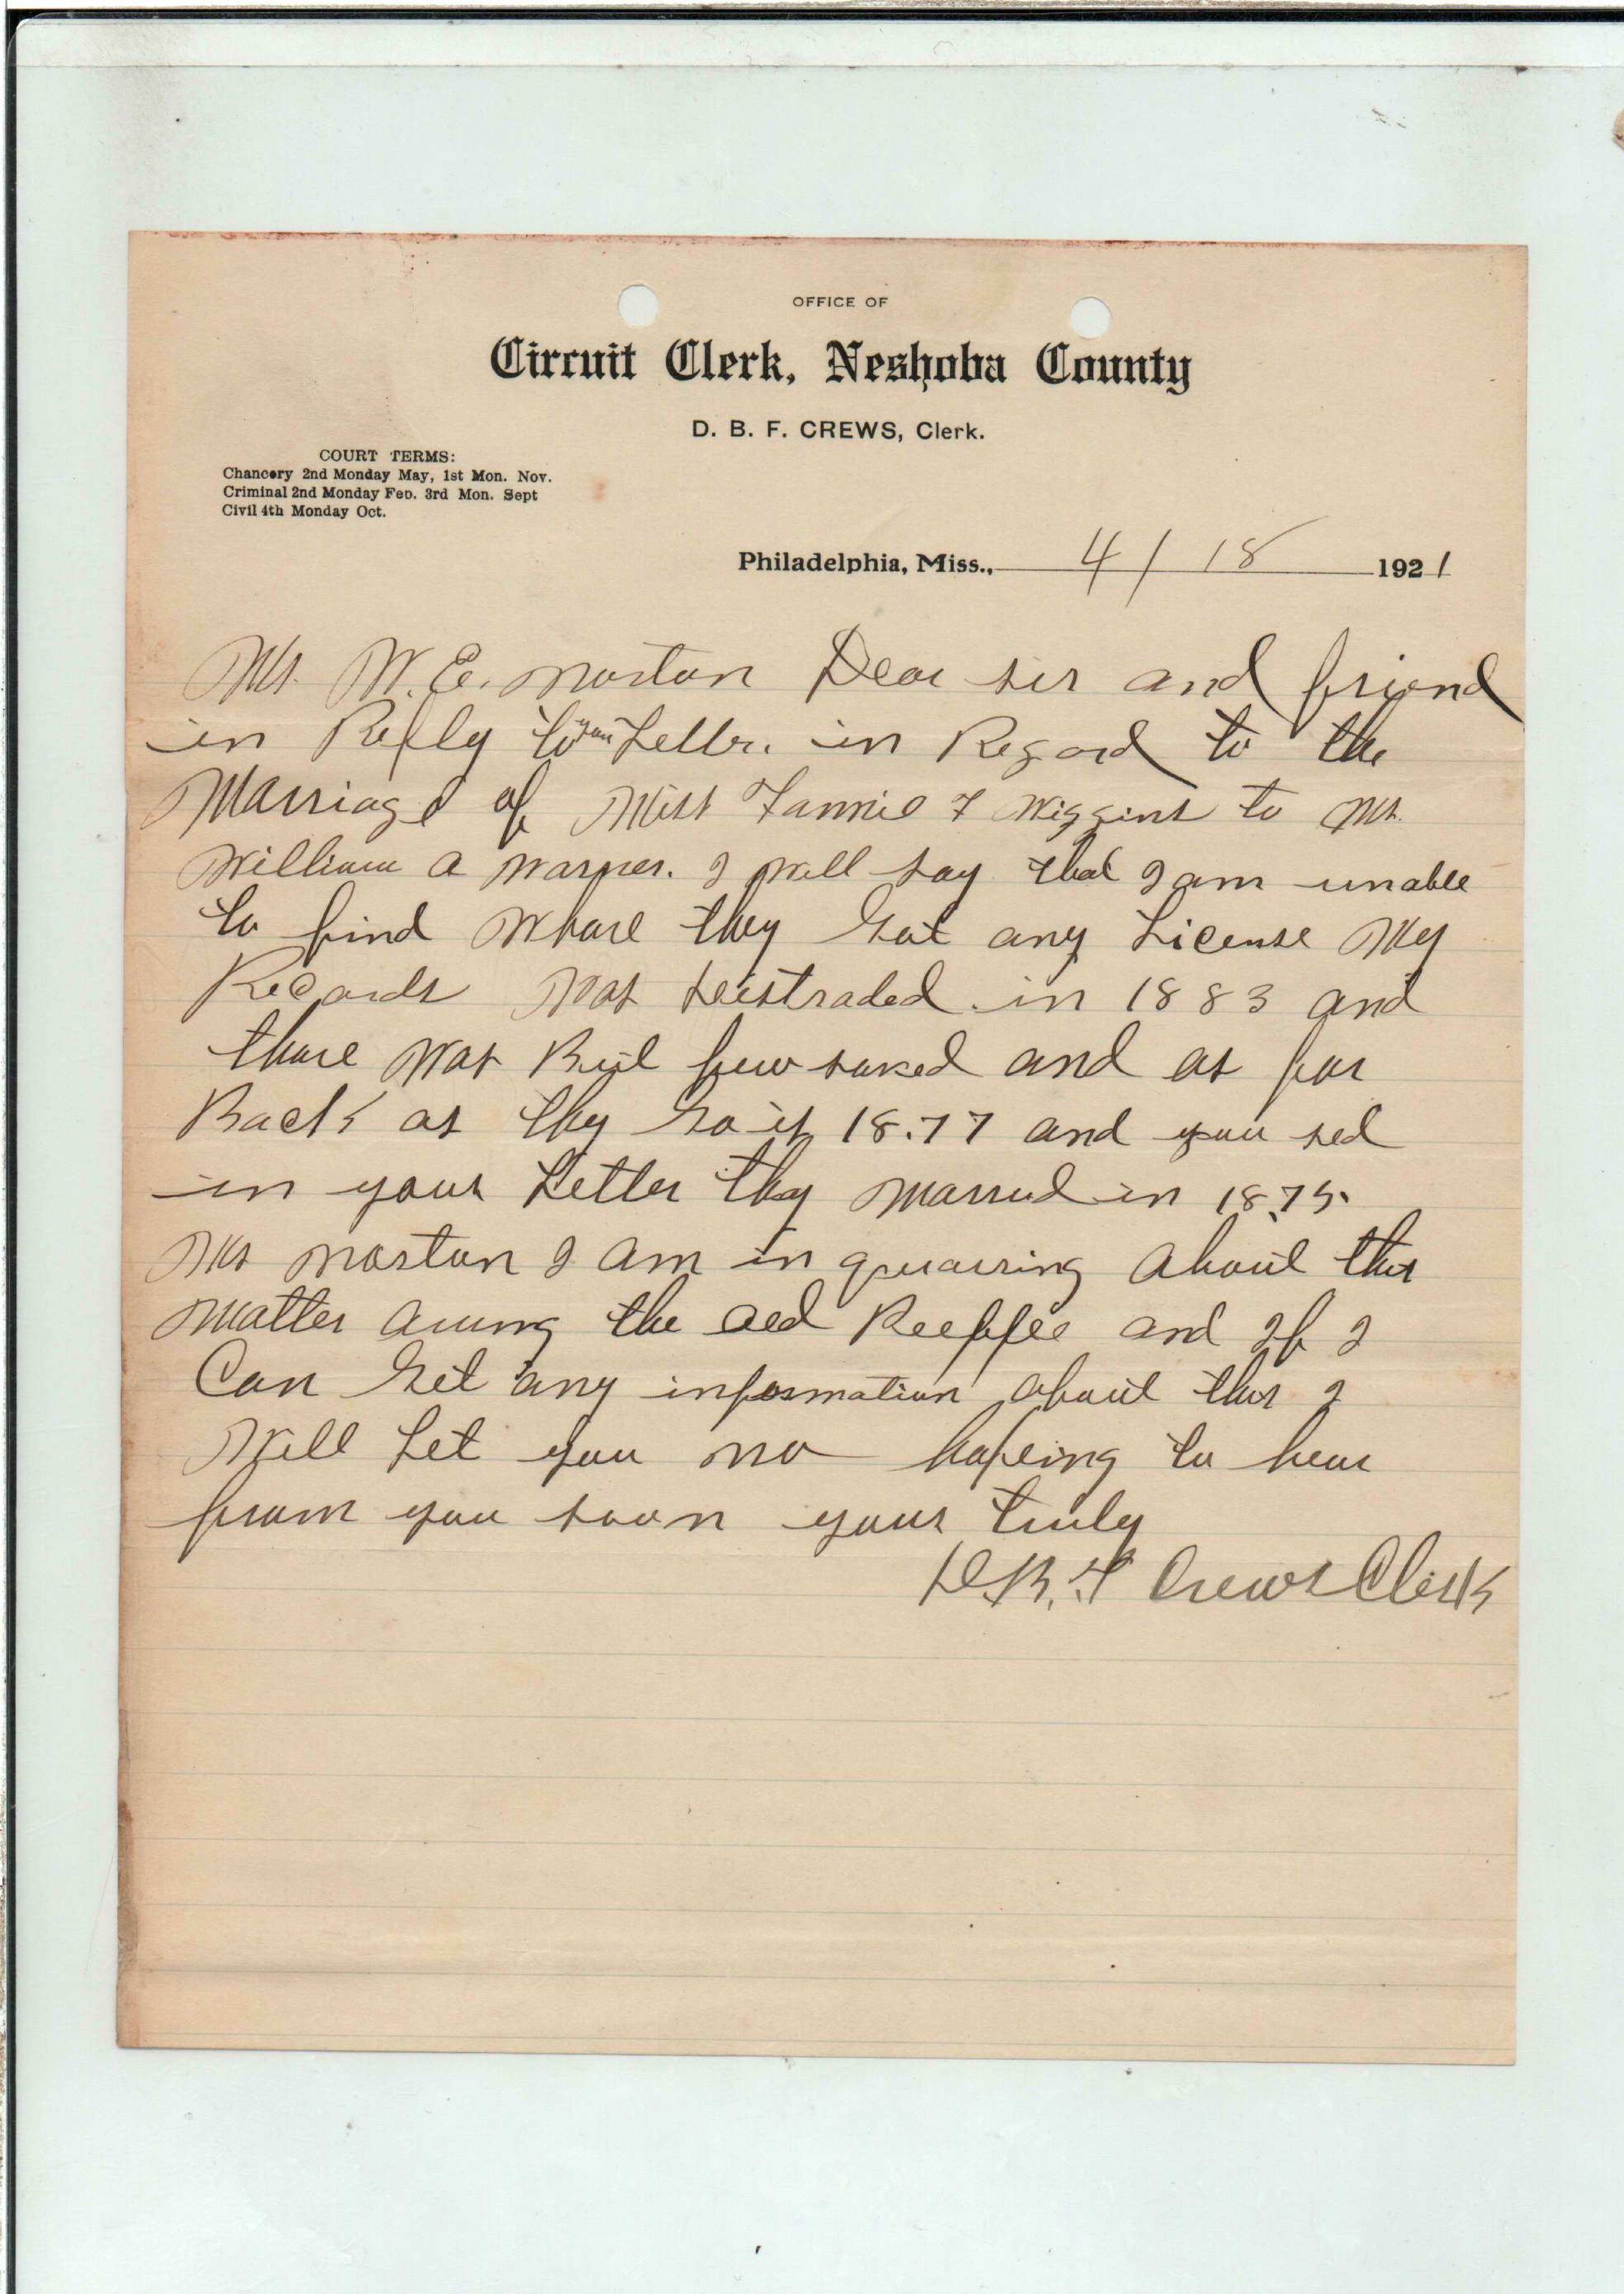 OFFICE OF
Circuit Clerk, Neshoba County
D. B. F. CREWS, Clerk.
COURT TERMS:
Chancery 2nd Monday May, 1st Mon. Nov.
Criminal 2nd Monday Feb. 3rd Mon. Sept
Civil 4th Monday Oct.
Philadelphia, Miss., 4/18 1921
Mr. W. E. Morton Dear sir and friend
in Reply to your Letter. in Regard to the
Marriage of Miss Fannie F Wiggins to Mr.
William A Warner. I will say that I am unable
to find whare they Got any License My
Records was deistraded in 1883 and
thare was But few saved and as far
Back as they Go is 1877 and you sed
in your Letter they married in 1875.
Mr Morton I am in quaring about this
matter amung the old Peepple and If I
Can Get any information about this I
Will Let you no hopeing to hear
from you soon yours truly
D.B.F Crews Clerk